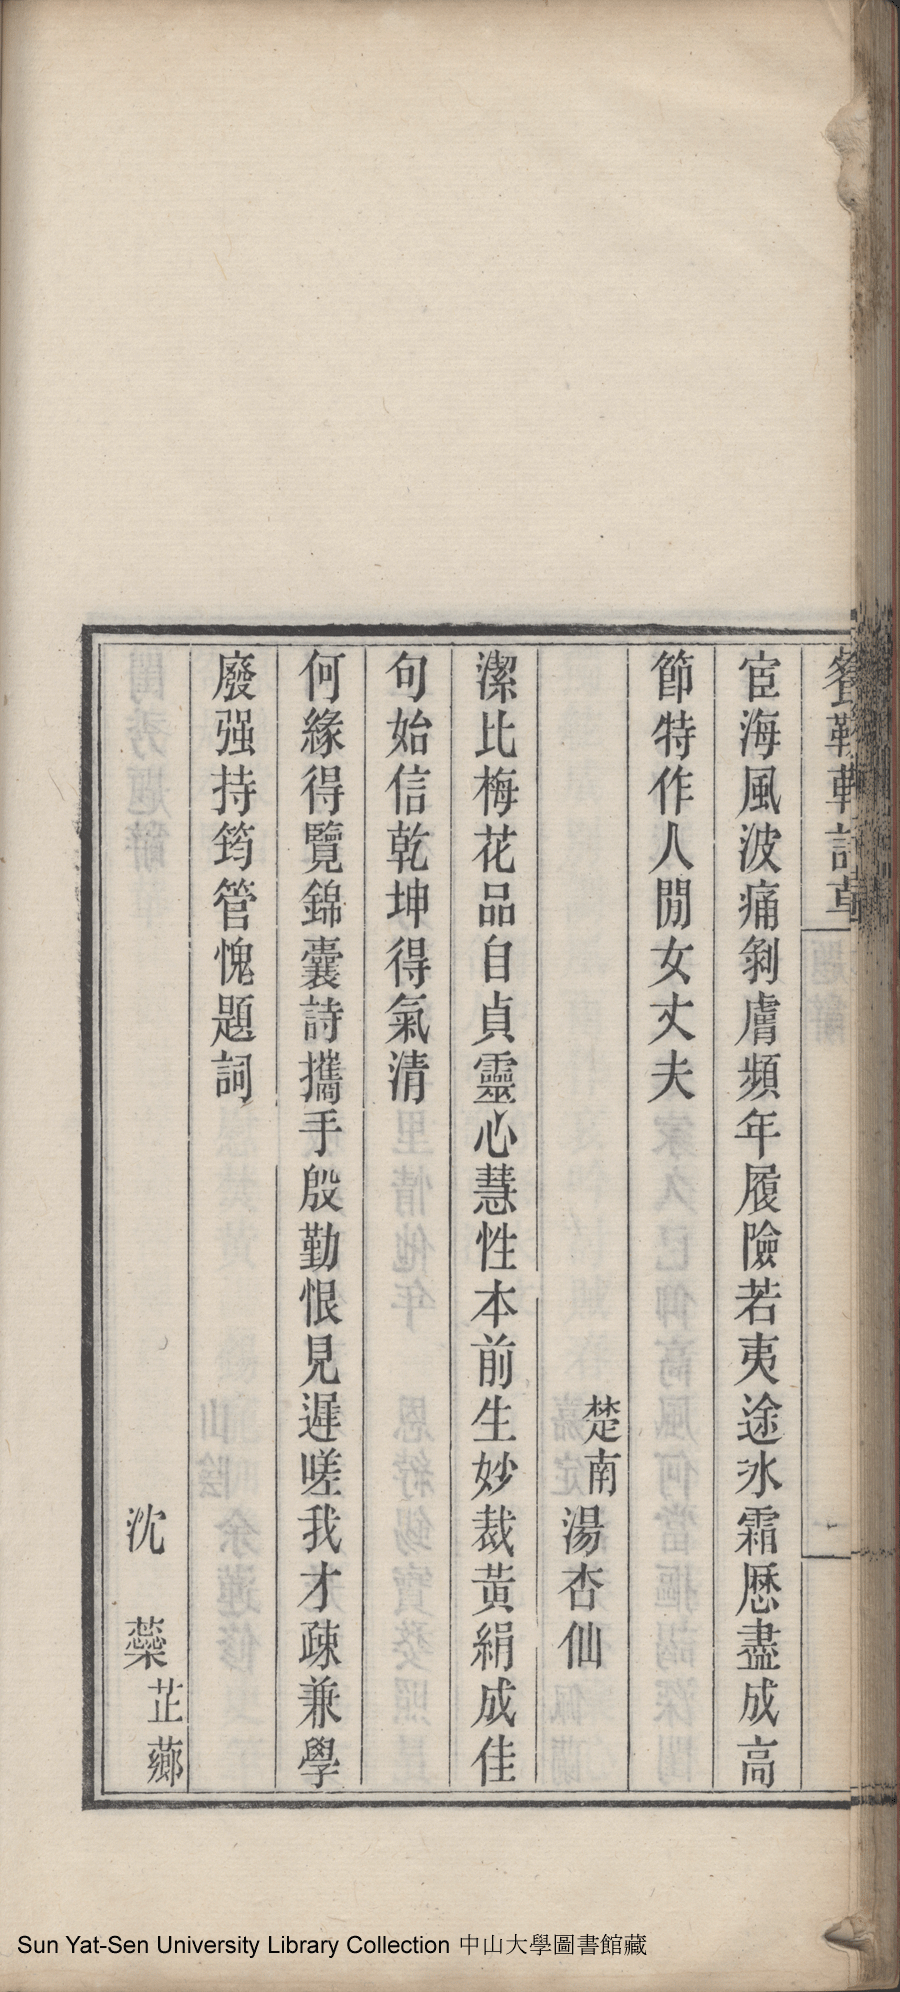 宦海風波痛剝膚頻年履險若夷途氷霜歷盡成高
節特作人間女丈夫
楚南湯杏仙
潔比梅花品自貞靈心慧性本前生妙裁黃絹成佳
句始信乾坤得氣清
何緣得覽錦囊詩攜手殷勤恨見遲嗟我才疎兼學
廢强持筠管愧題詞
沈蘂芷薌
Sun Yat-Sen University Library Collection 中山大學圖書館藏